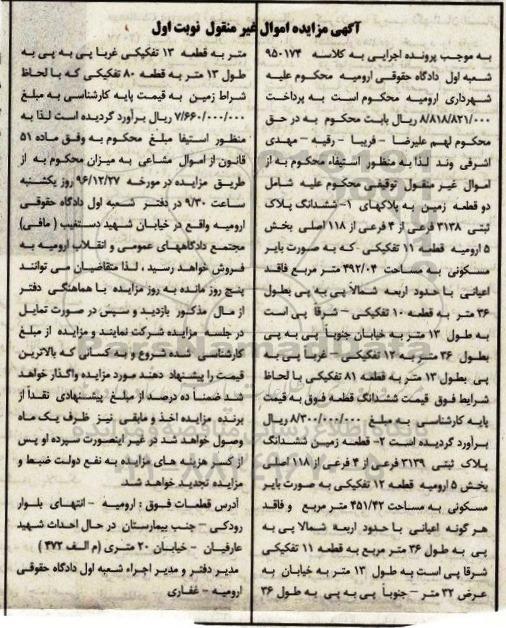 آگهی مزایده اموال غیر منقول نوبت اول
به موجب پرونده اجرایی به کلاسه ۹۵۰۱۷۴
شعبه اول دادگاه حقوقی ارومیه محکوم علیه
شهرداری ارومیه محکوم است به پرداخت
۸/۸۱۸/۸۲۱/۰۰۰ ریال بابت محکوم به در حق
محکوم لهم علیرضا - فریبا - رقیه - مهدی
اشرفی وند لذا به منظور استیفاء محکوم به از
اموال غیر منقول توقیفی محکوم علیه شامل
دو قطعه زمین به پلاکهای ۱- ششدانگ پلاک
ثبتی ۳۱۳۸ فرعی از ۴ فرعی از ۱۱۸ اصلی بخش
۵ ارومیه قطعه ۱۱ تفکیکی که به صورت بایر
مسکونی به مساحت ۴۹۲/۰۴ متر مربع فاقد
اعیانی با حدود اربعه شمالاً پی به پی بطول
۳۶ متر به قطعه ۱۰ تفکیکی - شرقا پی است
به طول ۱۳ متر به خیابان جنوباً پی به پی
بطول ۳۶ متر به ۱۲ تفکیکی - غرباً پی به
پی بطول ۱۳ متر به قطعه ۸۱ تفکیکی با لحاظ
شرایط فوق قیمت ششدانگ قطعه فوق به قیمت
پایه کارشناسی به مبلغ ۸/۳۰۰/۰۰۰/۰۰۰ ریال
برآورد گردیده است ۲- قطعه زمین ششدانگ
پلاک ثبتی ۳۱۳۹ فرعی از ۴ فرعی از ۱۱۸ اصلی
بخش ۵ ارومیه قطعه ۱۲ تفکیکی به صورت بایر
مسکونی به مساحت ۴۵۱/۴۲ متر مربع و فاقد
هر گونه اعیانی با حدود اربعه شمالا پی به
پی به طول ۳۶ متر مربع به قطعه ۱۱ تفکیکی
شرقا پی است به طول ۱۳ متر به خیابان به
عرض ۳۲ متر - جنوباً پی به پی به طول ۳۶
متر به قطعه ۱۳ تفکیکی غربا پی به پی به
طول ۱۳ متر به قطعه ۸۰ تفکیکی که با لحاظ
شراط زمین به قیمت پایه کارشناسی به مبلغ
۷/۶۶۰/۰۰۰/۰۰۰ ریال برآورد گردیده است لذا به
منظور استیفا مبلغ محکوم به وفق ماده ۵۱
قانون از اموال مشاعی به میزان محکوم به از
طریق مزایده در مورخه ۹۶/۱۲/۲۷ روز یکشنبه
ساعت ۹/۳۰ در دفتر شعبه اول دادگاه حقوقی
ارومیه واقع در خیابان شهید دستغیب (مافی)
مجتمع دادگاههای عمومی و انقلاب ارومیه به
فروش خواهد رسید، لذا متقاضیان می توانند
پنج روز مانده به روز مزایده با هماهنگی دفتر
از مال مذکور بازدید و سپس در صورت تمایل
در جلسه مزایده شرکت نمایند و مزایده از مبلغ
کارشناسی شده شروع و به کسانی که بالاترین
قیمت را پیشنهاد دهند مورد مزایده واگذار خواهد
شد ضمنا ده درصد از مبلغ پیشنهادی نقداً از
برنده مزایده اخذ و مابقی نیز ظرف یک ماه
وصول خواهد شد در غیر اینصورت سپرده او پس
از کسر هزینه های مزایده به نفع دولت ضبط و
مزایده تجدید خواهد شد
آدرس قطعات فوق: ارومیه - انتهای بلوار
رودکی - جنب بیمارستان در حال احداث شهید
عارفیان - خیابان ۲۰ متری (م الف ۴۷۲)
مدیر دفتر و مدیر اجراء شعبه اول دادگاه حقوقی
ارومیه - غفاری